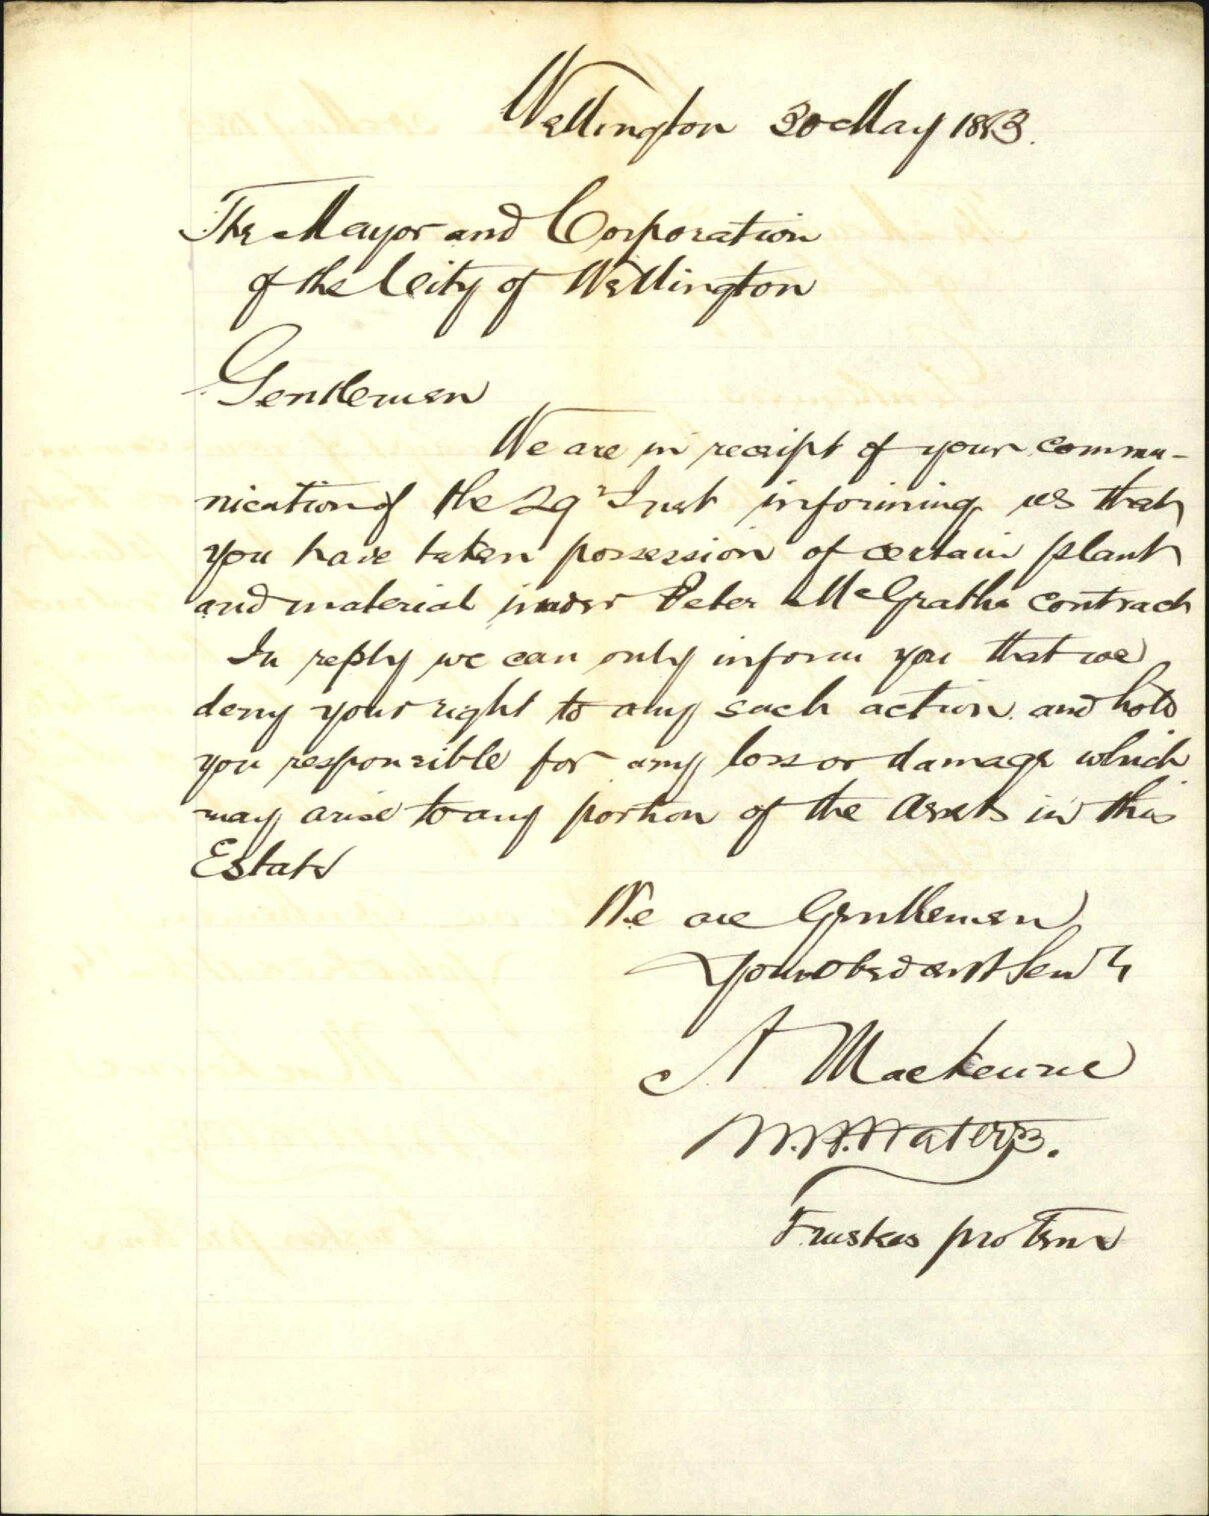 Wellington 30 May 1883.
The Mayor and Corporation
of the City of Wellington
Gentlemen
We are in receipt of your commu-
nication of the 29th Inst informing us that
you have taken possession of certain plant
and material under Peter McGraths contract
In reply we can only inform you that we
deny your right to any such action and hold
you responsible for any loss or damage which
may arise to any portion of the assets in this
Estate
We are Gentlemen
Your obedient Servts
A Mackenzie
Waters.
Trustees pro tem